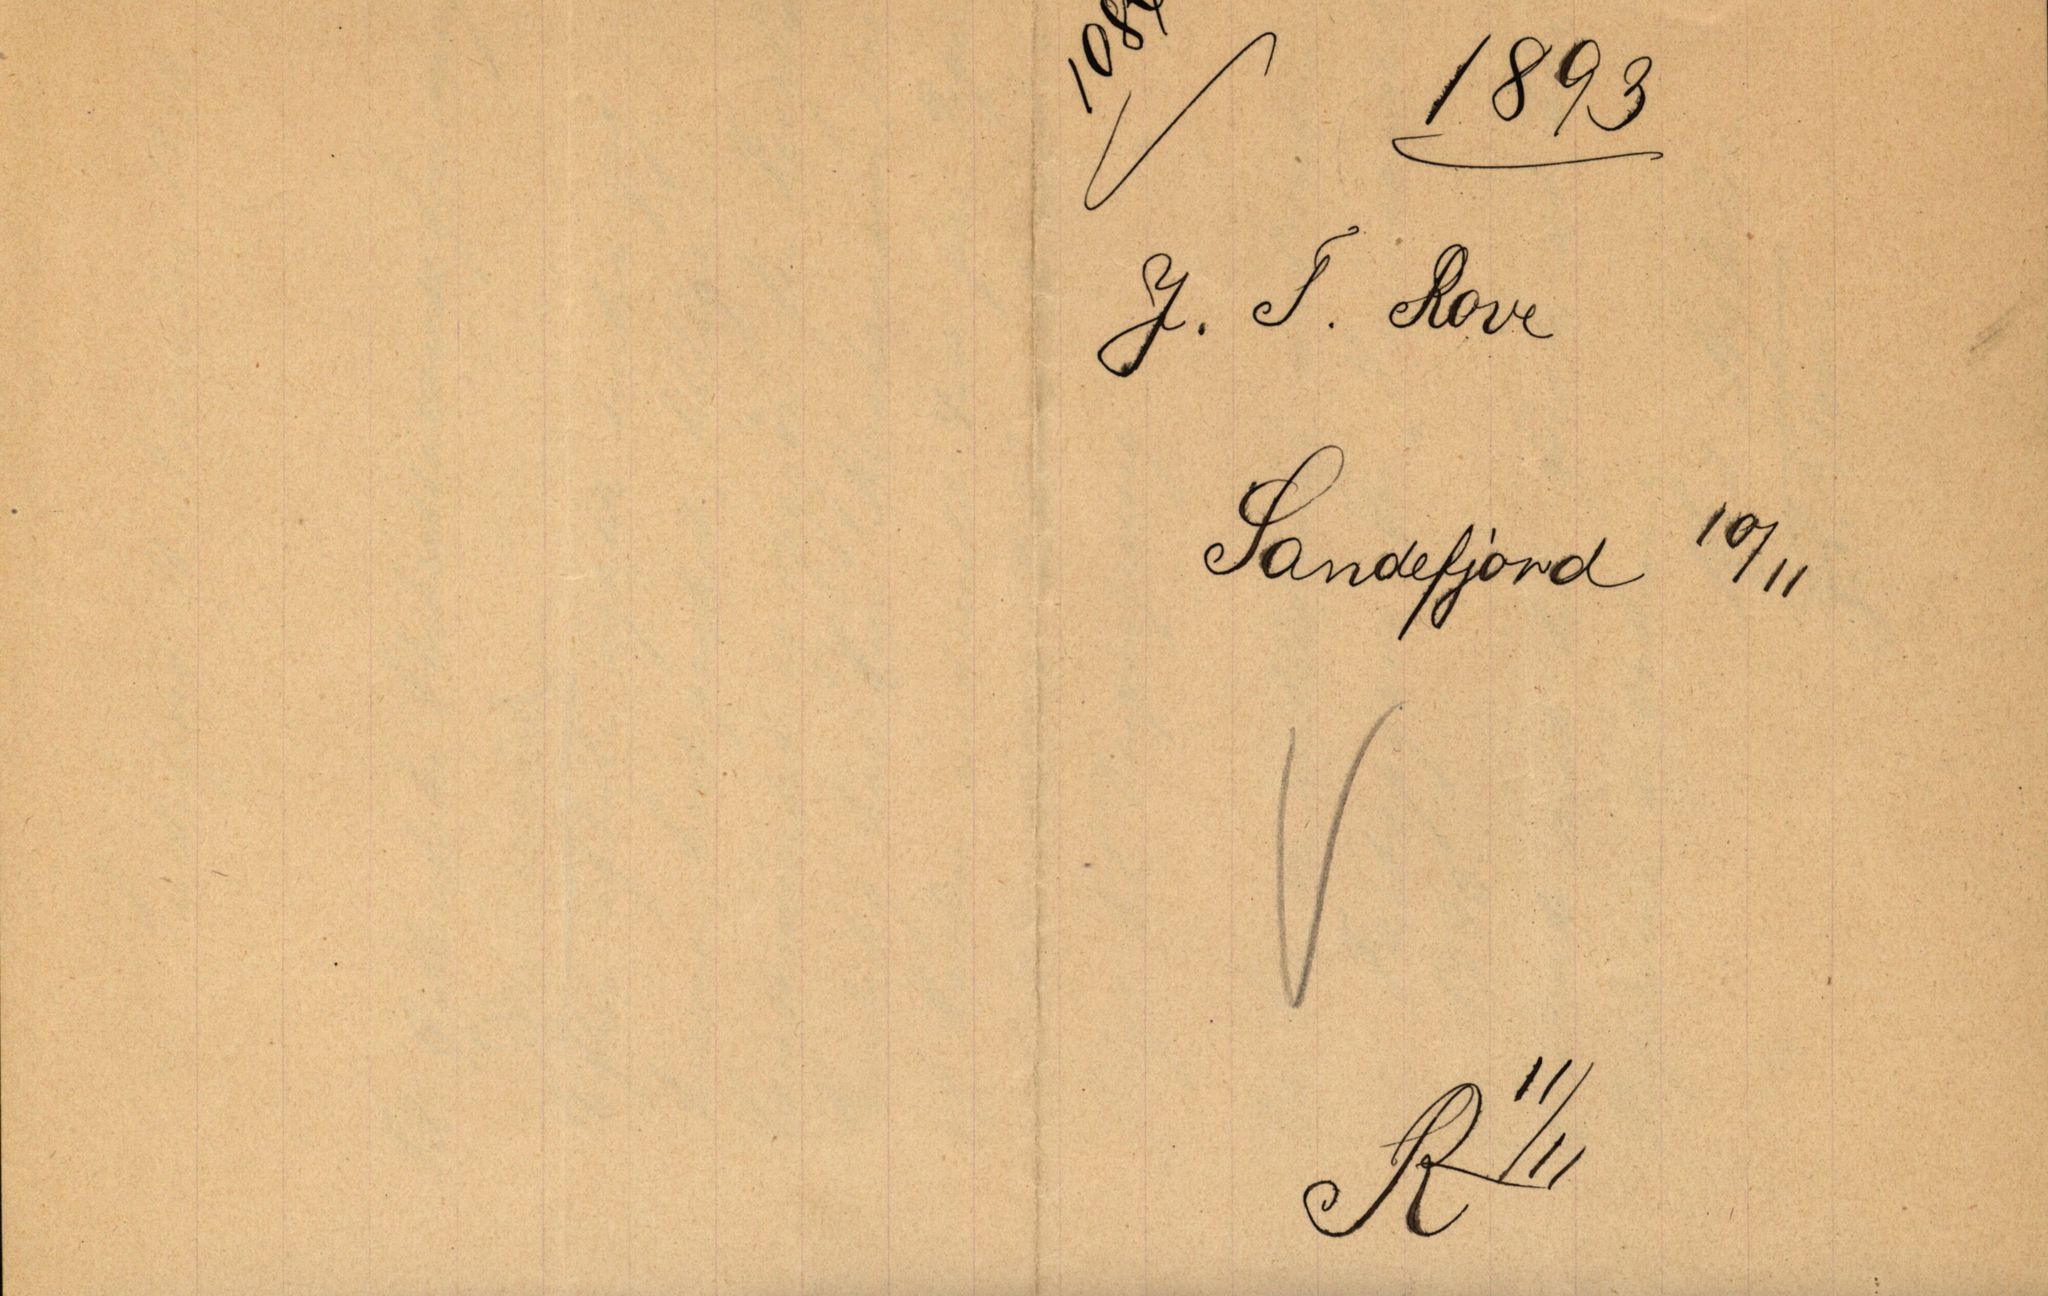 1893
J. T. Rove
Sandefjord 10/11
R 11/11